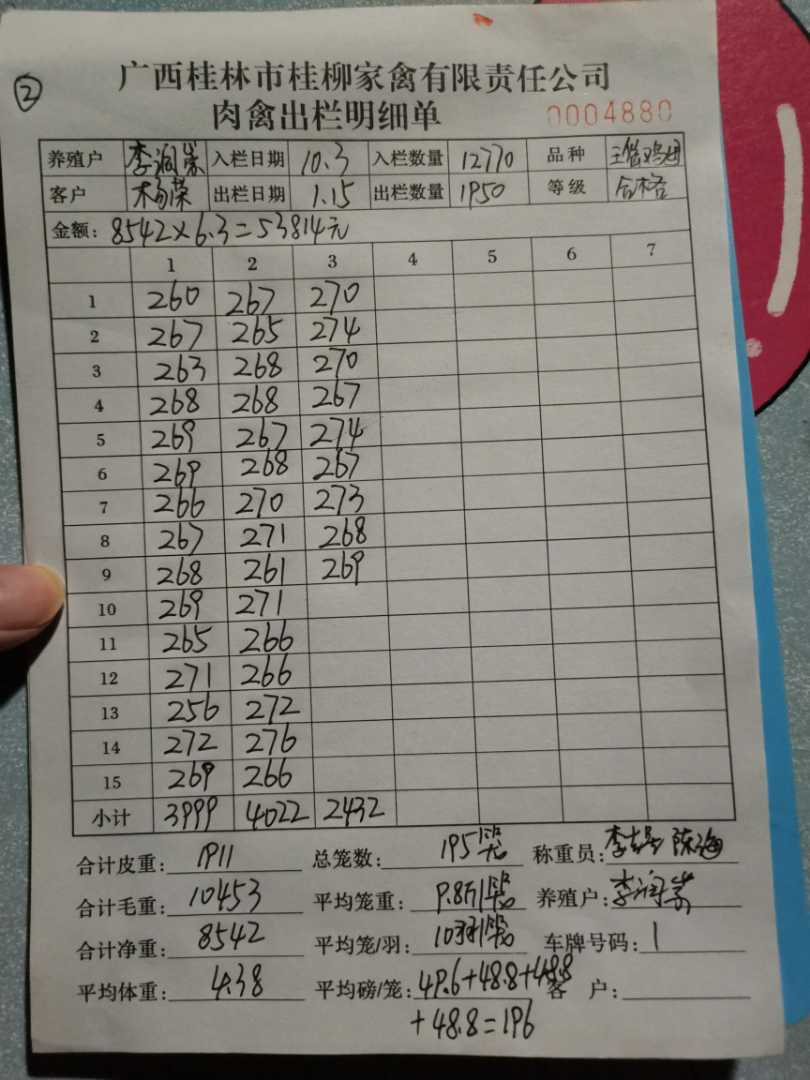 ②
广西桂林市桂柳家禽有限责任公司
肉禽出栏明细单 0004880
养殖户 李润嵩 入栏日期 10.3 入栏数量 12770 品种
客户 荣 出栏日期 1.15 出栏数量 1950 等级 合格
金额: 8542×6.3=53814元
1 2 3 4 5 6 7
1 260 267 270
2 267 265 274
3 263 268 270
4 268 268 267
5 269 267 274
6 269 268 267
7 266 270 273
8 267 271 268
9 268 261 269
10 269 271
11 265 266
12 271 266
13 256 272
14 272 276
15 269 266
小计 3999 4022 2432
合计皮重: 1911 总笼数: 195笼 称重员: 李 陈海
合计毛重: 10453 平均笼重: 9.8斤/笼 养殖户: 李润嵩
合计净重: 8542 平均笼/羽: 10羽/笼 车牌号码: 1
平均体重: 4.38 平均磅/笼: 49.6+48.8+48.8 客 户:
+48.8=196